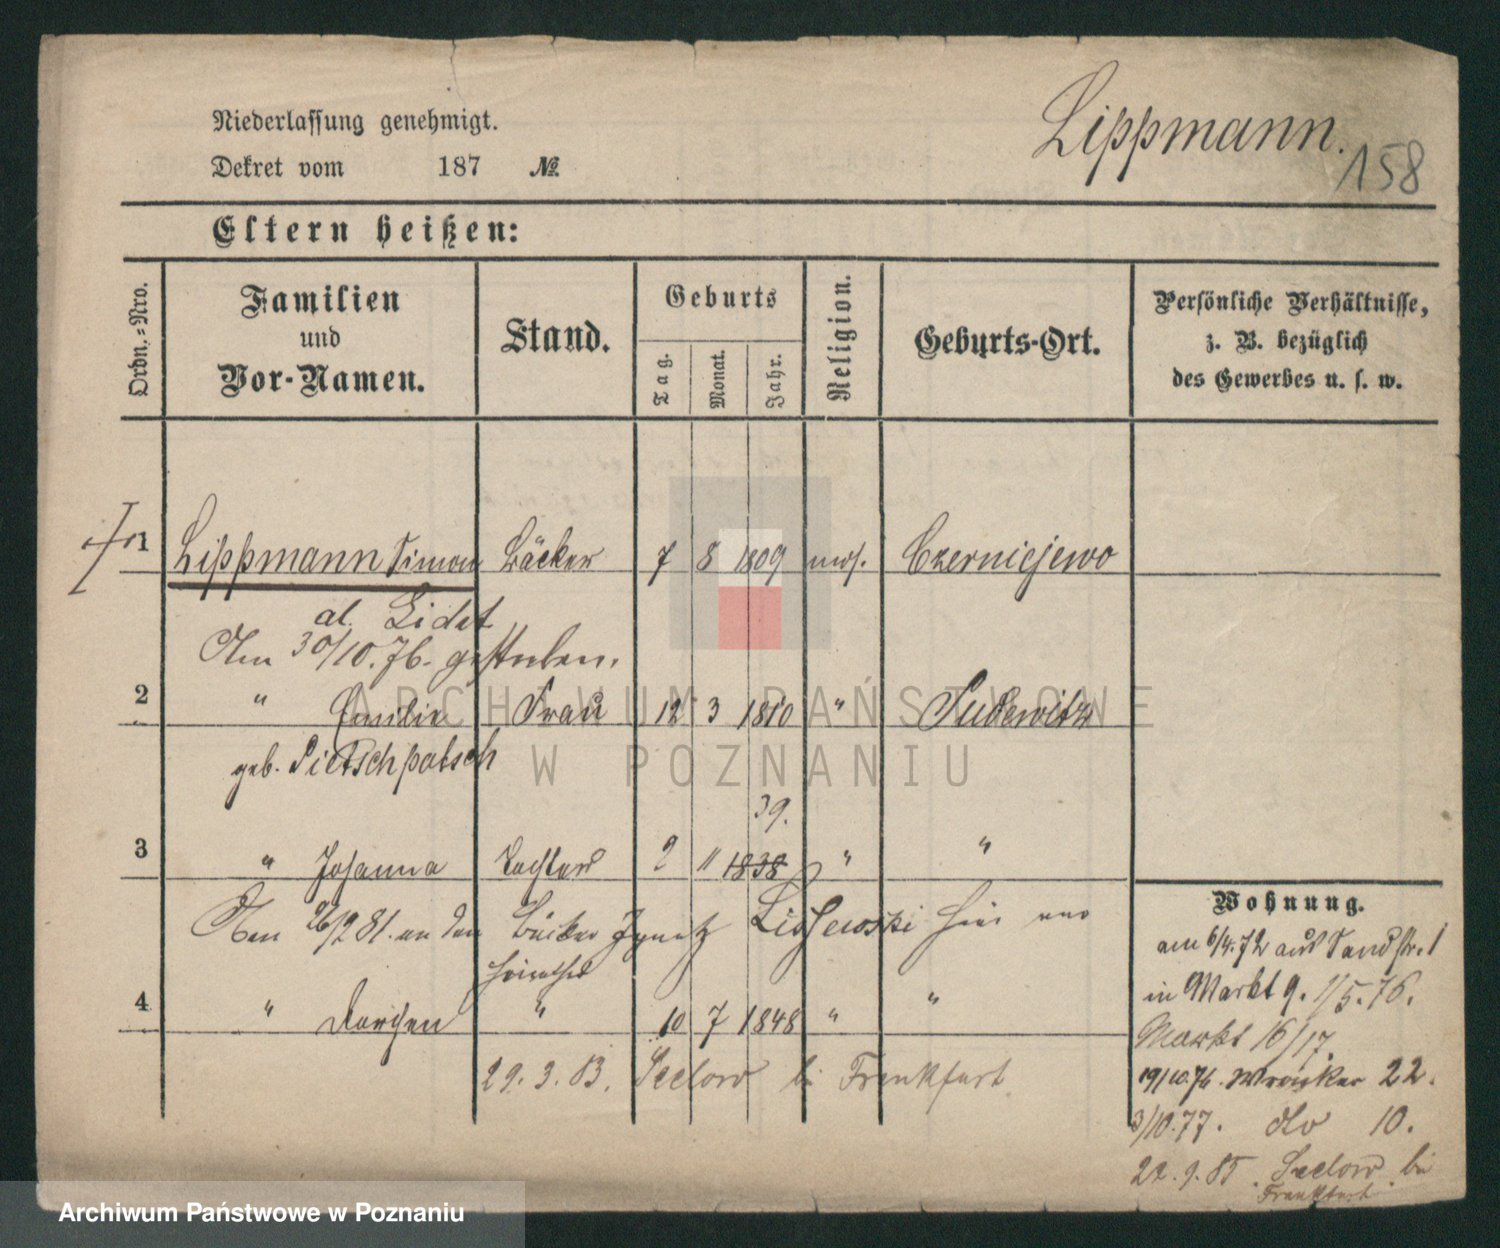 Niederlassung genehmigt.
Dekret vom 187 №
Lippmann.
158
Eltern heißen:
Ordn.-Nro.
Familien
und
Vor-Namen.
Stand.
Geburts
Tag.
Monat.
Jahr.
Religion.
Geburts-Ort.
Persönliche Verhältnisse,
z. B. bezüglich
des Gewerbes u. s. w.
1 Lippmann Simon Bäcker 7 8 1809 mos. Czerniejewo
al. Lidet
Am 30/10.76. gestorben.
2 " Emilie Frau 12 3 1810 " Pudewitz
geb. Pietschpatsch
39.
3 " Johanna Tochter 2 11 1838 " "
Am 26/2 81. an den Bäcker Ignatz Lissewski hier
heirathet
4 " Dorchen " 10 7 1848 " "
29. 3. 83. Seelow bei Frankfurt
Wohnung.
am 6/4.72 aus Sandstr. 1
in Markt 9. 1/5.76.
Markt 16/17.
19/10.76. Wronker 22.
3/10.77. do 10.
22.9.85. Seelow bei
Frankfurt
ARCHIWUM PAŃSTWOWE
W POZNANIU
Archiwum Państwowe w Poznaniu